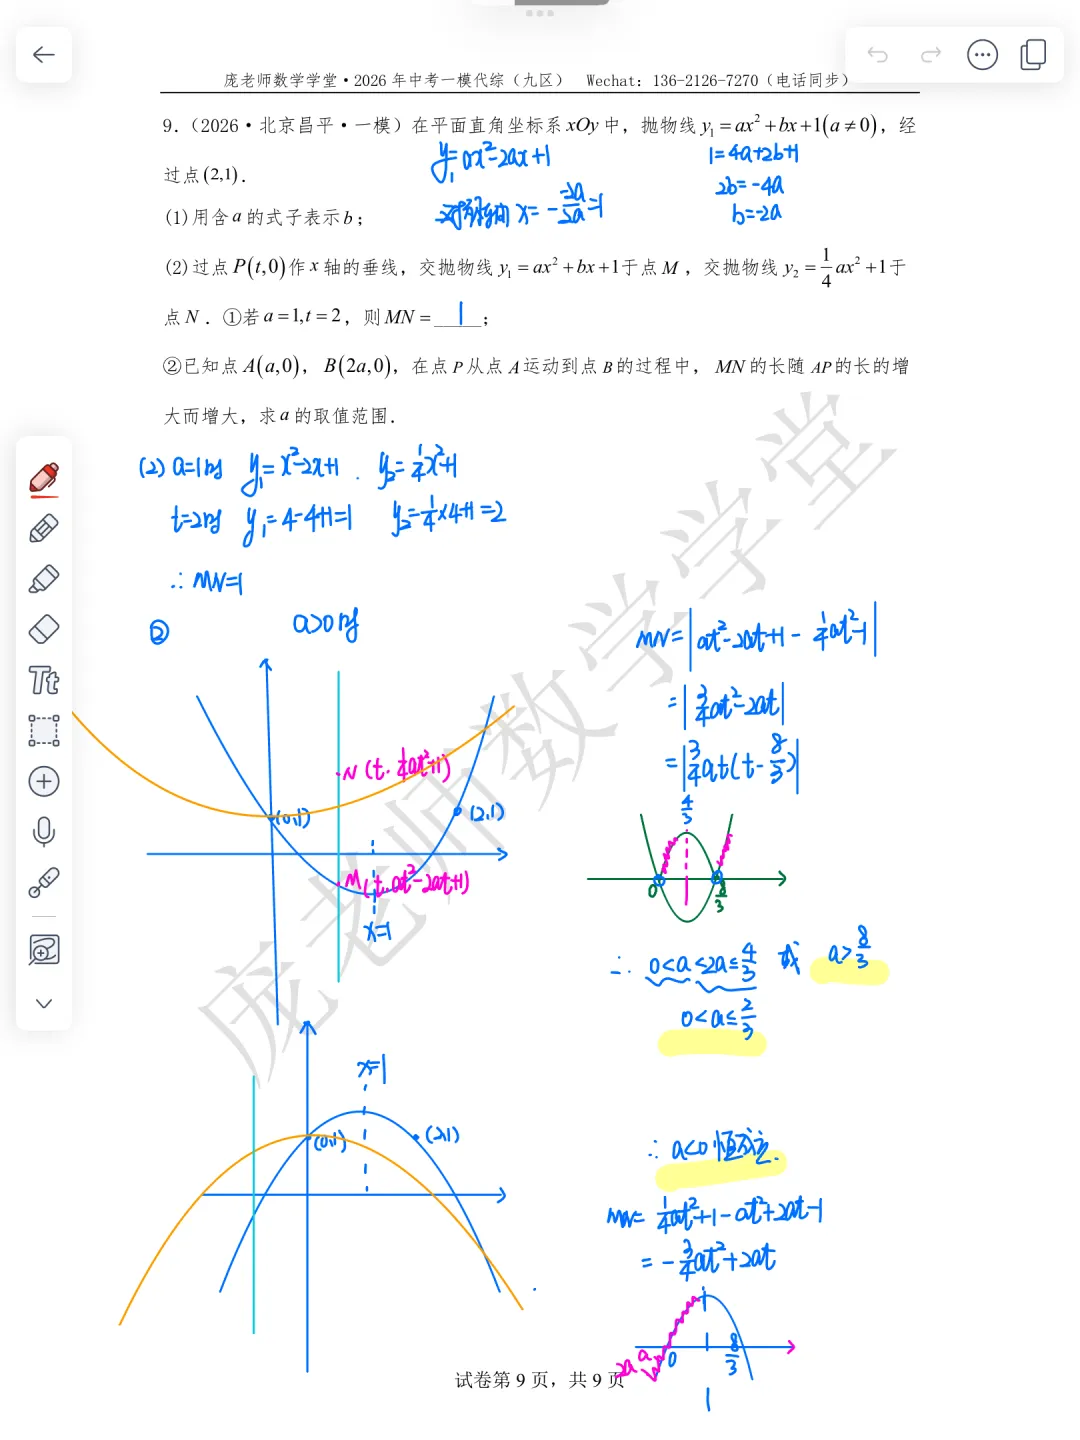 庞老师数学学堂·2026年中考一模代综（九区） Wechat：136-2126-7270（电话同步）
9．（2026·北京昌平·一模）在平面直角坐标系xOy中，抛物线y₁=ax²+bx+1(a≠0)，经
过点(2,1)．
y₁=ax²-2ax+1
对称轴 x=-\frac{-2a}{2a}=1
1=4a+2b+1
2b=-4a
b=-2a
(1)用含a的式子表示b；
(2)过点P(t,0)作x轴的垂线，交抛物线y₁=ax²+bx+1于点M，交抛物线y₂=\frac{1}{4}ax²+1于
点N．①若a=1,t=2，则MN=__1__；
②已知点A(a,0)，B(2a,0)，在点P从点A运动到点B的过程中，MN的长随AP的长的增
大而增大，求a的取值范围．
(2) a=1时 y₁=x²-2x+1 . y₂=\frac{1}{4}x²+1
t=2时 y₁=4-4+1=1 y₂=\frac{1}{4}×4+1=2
∴MN=1
② a>0时
N(t,\frac{1}{4}at²+1)
(0,1)
(2,1)
M(t,at²-2at+1)
x=1
MN=|at²-2at+1-\frac{1}{4}at²-1|
=|\frac{3}{4}at²-2at|
=|\frac{3}{4}at(t-\frac{8}{3})|
\frac{4}{3}
0
\frac{8}{3}
∴ 0<a≤2a≤\frac{4}{3} 或 a>\frac{8}{3}
0<a≤\frac{2}{3}
x=1
(0,1)
(2,1)
∴a<0恒成立.
MN=\frac{1}{4}at²+1-at²+2at-1
=-\frac{3}{4}at²+2at
2a a 0 \frac{8}{3}
1
试卷第9页，共9页
庞老师数学学堂
Tt